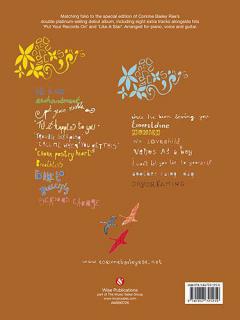 Matching folio to the special edition of Corinne Bailey Rae's
double platinum-selling debut album, including eight extra tracks alongside hits
'Put Your Records On' and 'Like A Star'. Arranged for piano, voice and guitar.
like a star
enchantment
put your records on
till it happens to you
trouble sleeping
call me when you get this
choux pastry heart
breathless
seasons change
since i've been loving you
Emeraldine
no love child
Venus as a boy
I won't let you lie to yourself
another rainy day
DAYDREAMING
www.corinnebaileyrae.net
Wise Publications
part of The Music Sales Group
www.musicsales.com